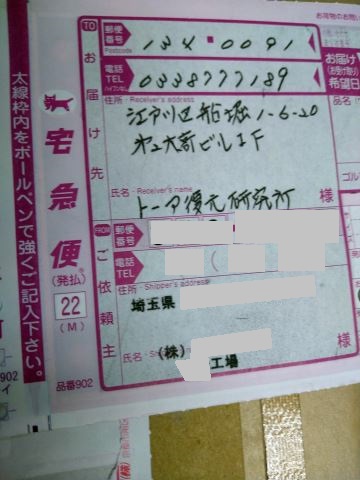 お荷物のお問い
TO
郵便番号
Postcode
134-0091
お届け先
電話 TEL
ハイフンなし
0338777189
お届け
(お受け取り)
希望日
住所・Receiver's address
江戸川区船堀1-6-20
ビル1F
氏名・Receiver's name
トーア復元研究所 様
FROM
郵便番号
ご依頼主
電話 TEL
( 
住所・Shipper's address
埼玉県
氏名・
(株)
工場
様
宅急便
(発払)
22
(M)
品番902
太線枠内をボールペンで強くご記入下さい。
902